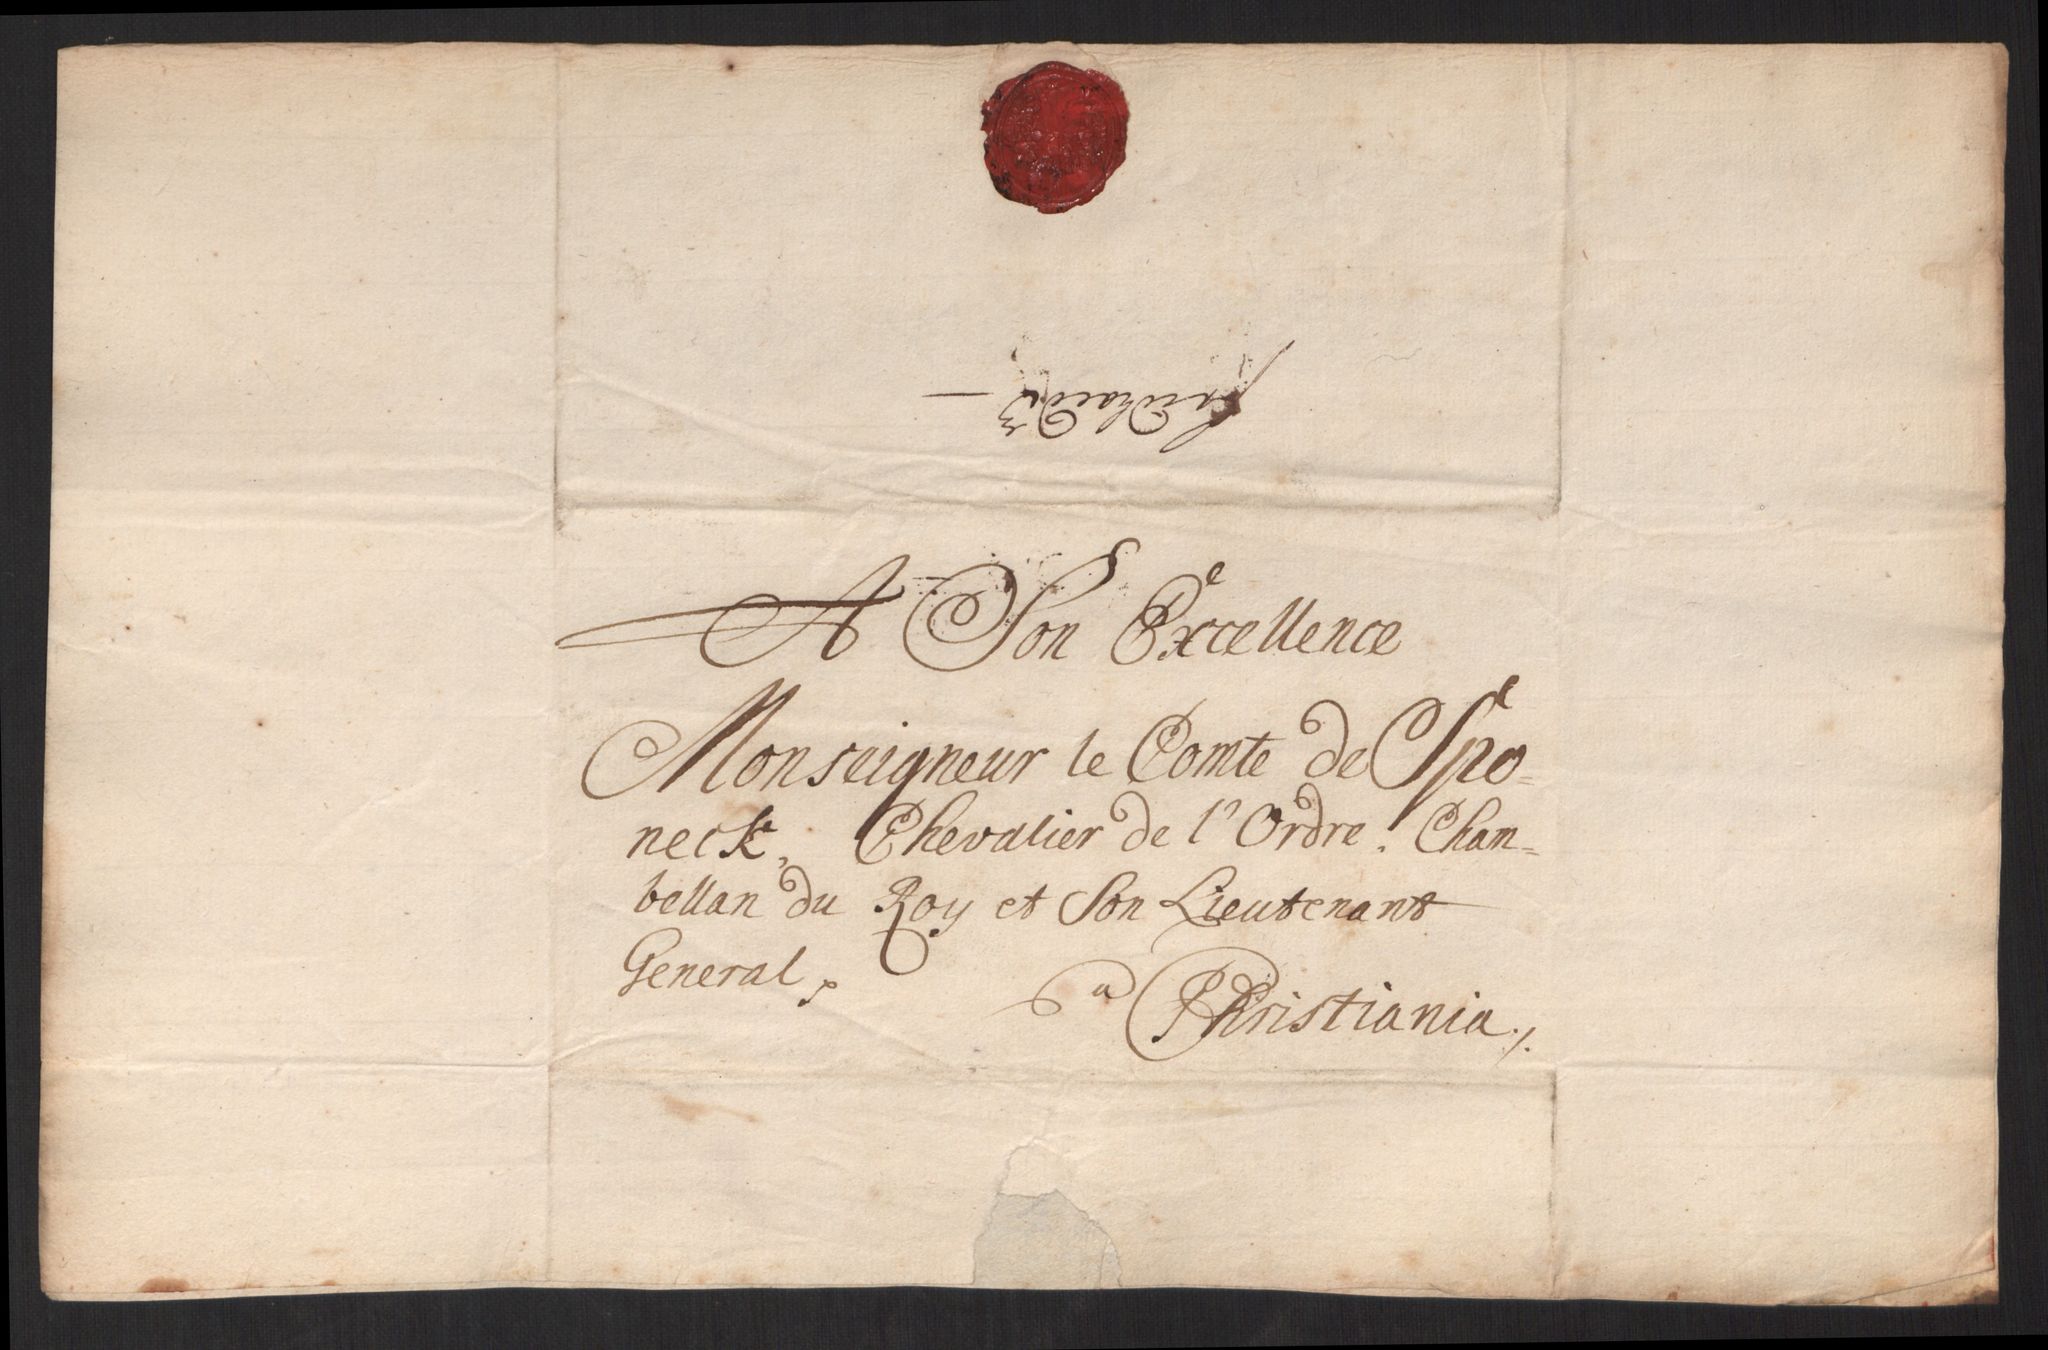 A Son Excellence
Monseigneur le Comte de Spo=
neck, Chevalier de l'Ordre. Cham=
bellan du Roy et Son Lieutenant
General,
a Christiania./.